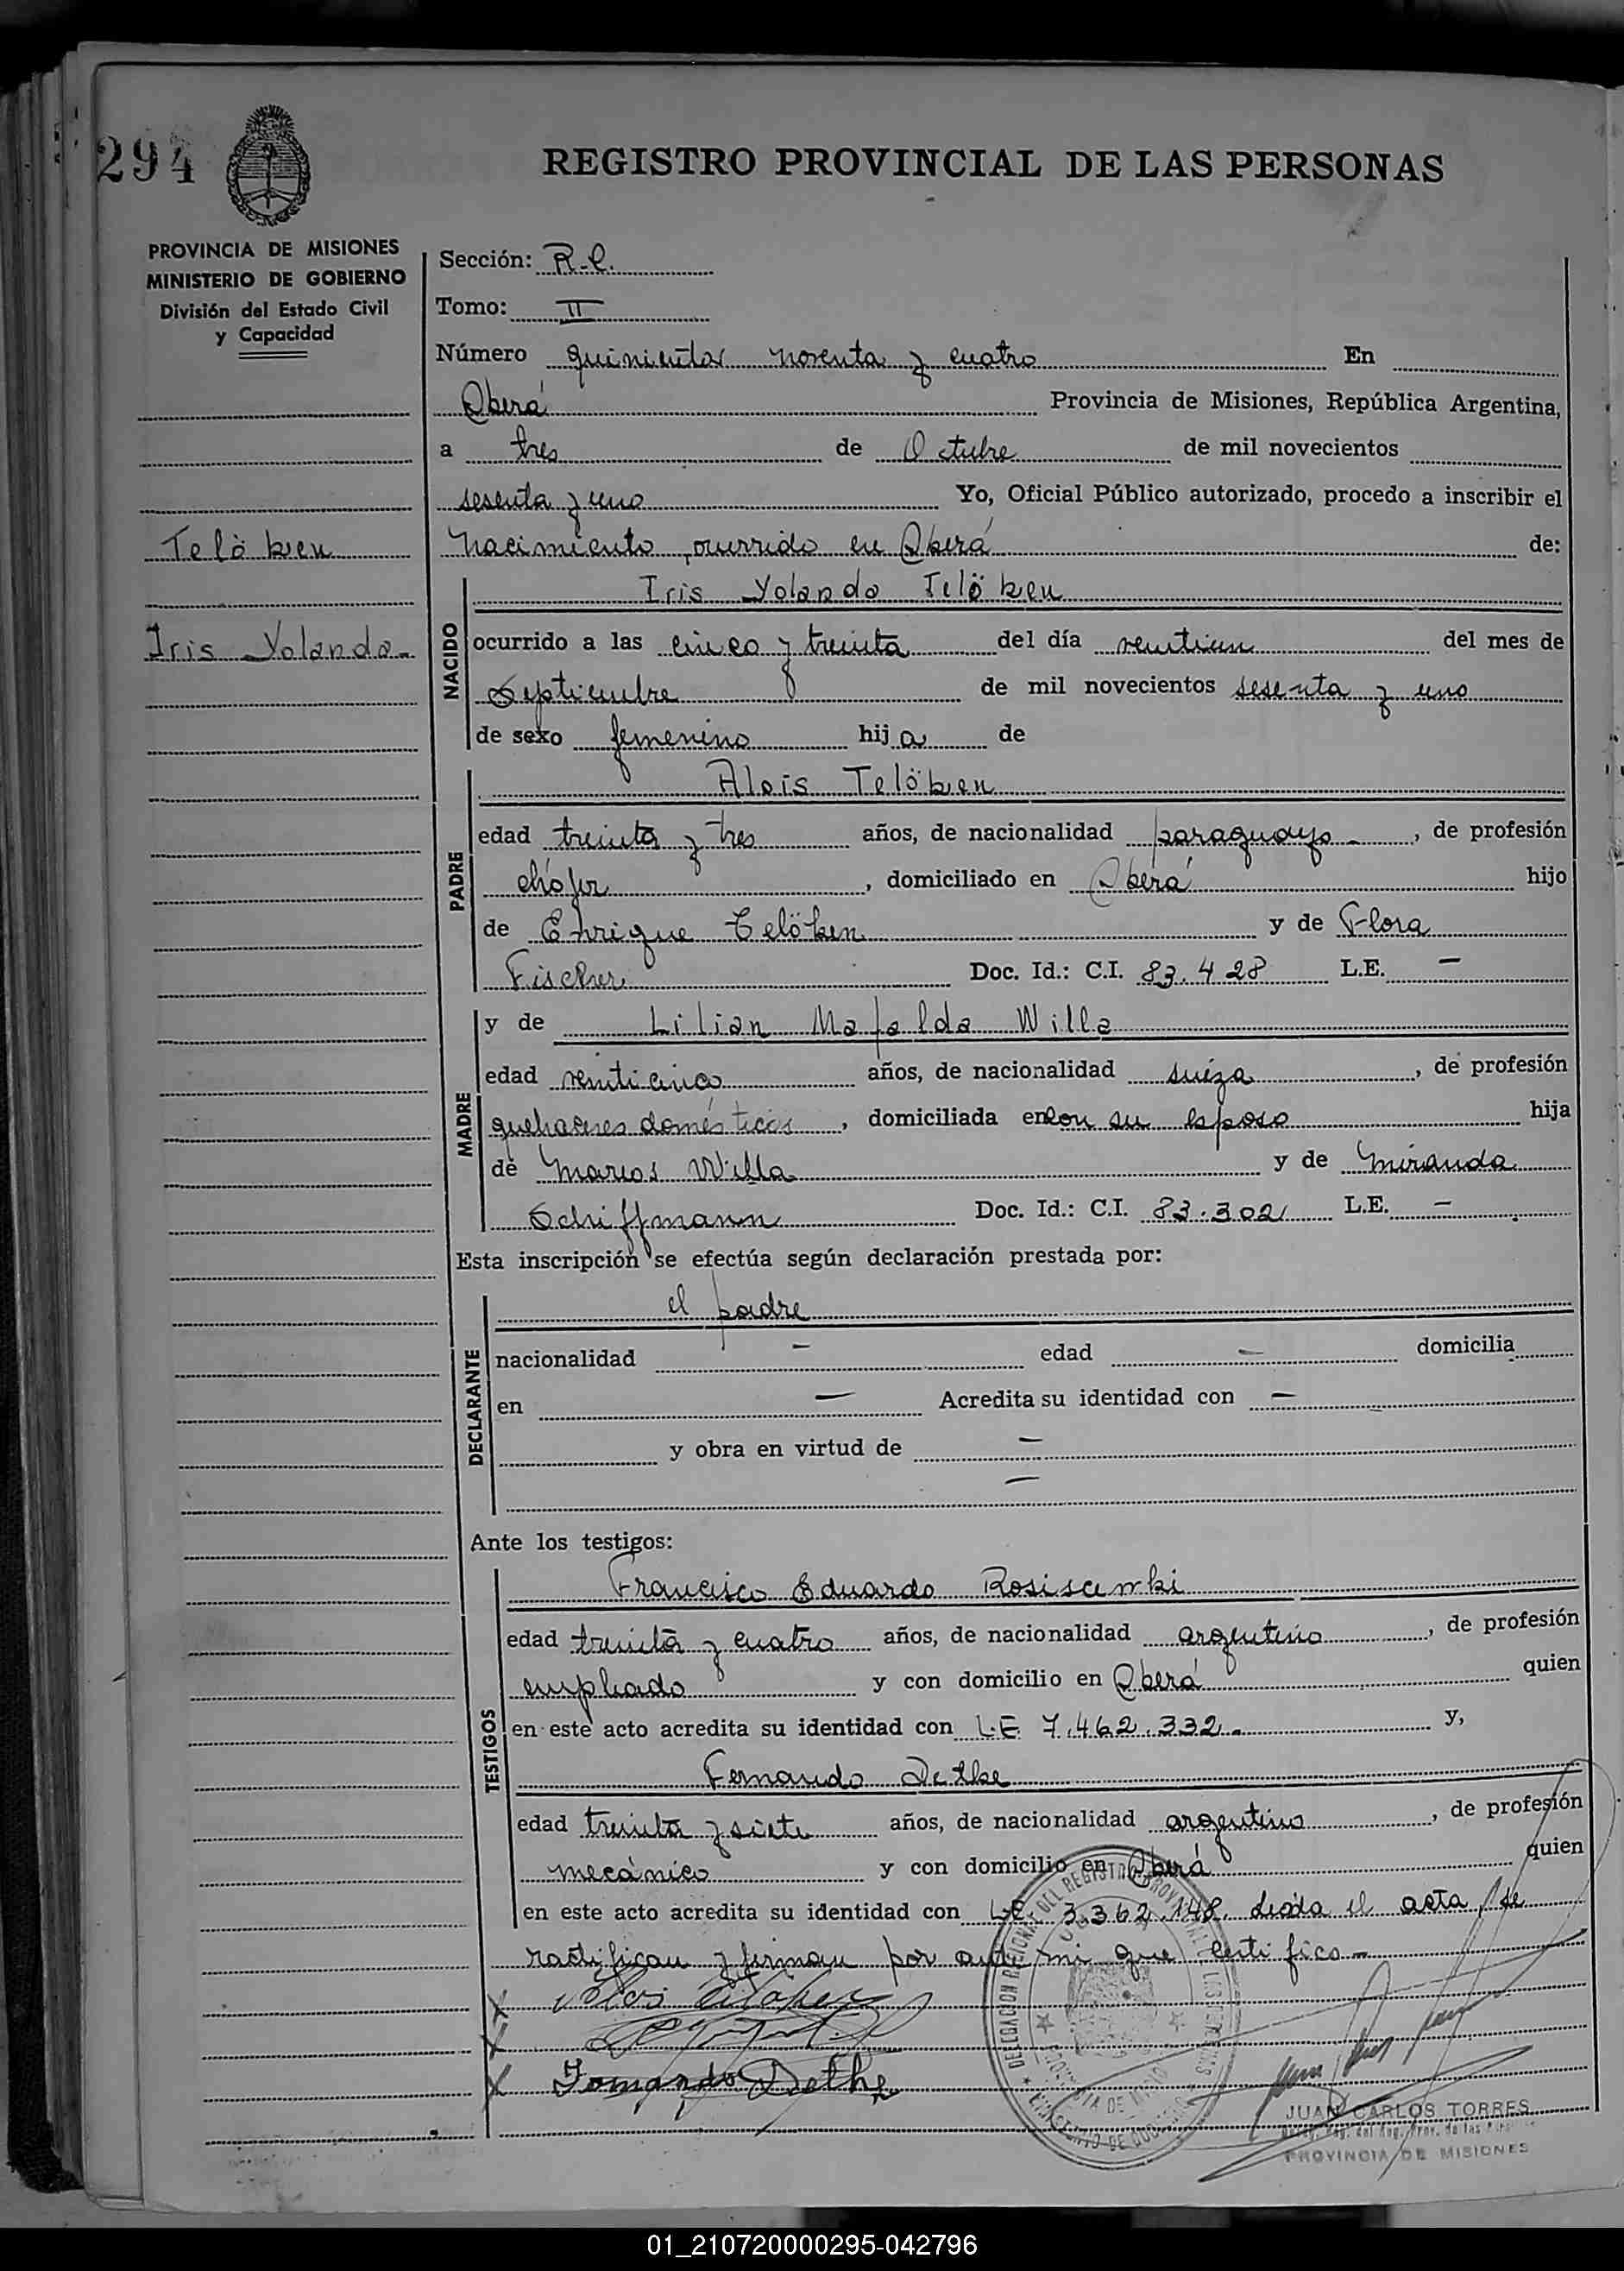 294
REGISTRO PROVINCIAL DE LAS PERSONAS
PROVINCIA DE MISIONES
MINISTERIO DE GOBIERNO
División del Estado Civil
y Capacidad
Telöken
Iris Yolanda-
Sección: R.C.
Tomo: II
Número quinientos noventa y cuatro En
Oberá Provincia de Misiones, República Argentina,
a tres de Octubre de mil novecientos
sesenta y uno Yo, Oficial Público autorizado, procedo a inscribir el
Nacimiento, ocurrido en Oberá de:
NACIDO
Iris Yolanda Telöken
ocurrido a las cinco y treinta del día veintiun del mes de
Septiembre de mil novecientos sesenta y uno
de sexo femenino hija de
PADRE
Alois Telöken
edad treinta y tres años, de nacionalidad paraguayo-, de profesión
chófer, domiciliado en Oberá hijo
de Enrique Telöken y de Flora
Fischer Doc. Id.: C.I. 83.428 L.E. —
MADRE
y de Lilian Mafalda Willa
edad veinticinco años, de nacionalidad suiza, de profesión
quehaceres domésticos, domiciliada en con su esposo hija
de Marcos Willa y de Miranda
Schiffmann Doc. Id.: C.I. 83.302 L.E. —
Esta inscripción se efectúa según declaración prestada por:
DECLARANTE
el padre
nacionalidad — edad — domicilia
en — Acredita su identidad con —
y obra en virtud de —
—
Ante los testigos:
TESTIGOS
Francisco Eduardo
edad treinta y cuatro años, de nacionalidad argentino, de profesión
empleado y con domicilio en Oberá quien
en este acto acredita su identidad con L.E 7.462.332- y,
Fernando Dethe
edad treinta y siete años, de nacionalidad argentino, de profesión
mecánico y con domicilio en Oberá quien
en este acto acredita su identidad con L.E. 3.362.148. Leída el acta, se
ratifican y firman por ante mi que certifico-
Dethe
JUAN CARLOS TORRES
PROVINCIA DE MISIONES
01_210720000295-042796